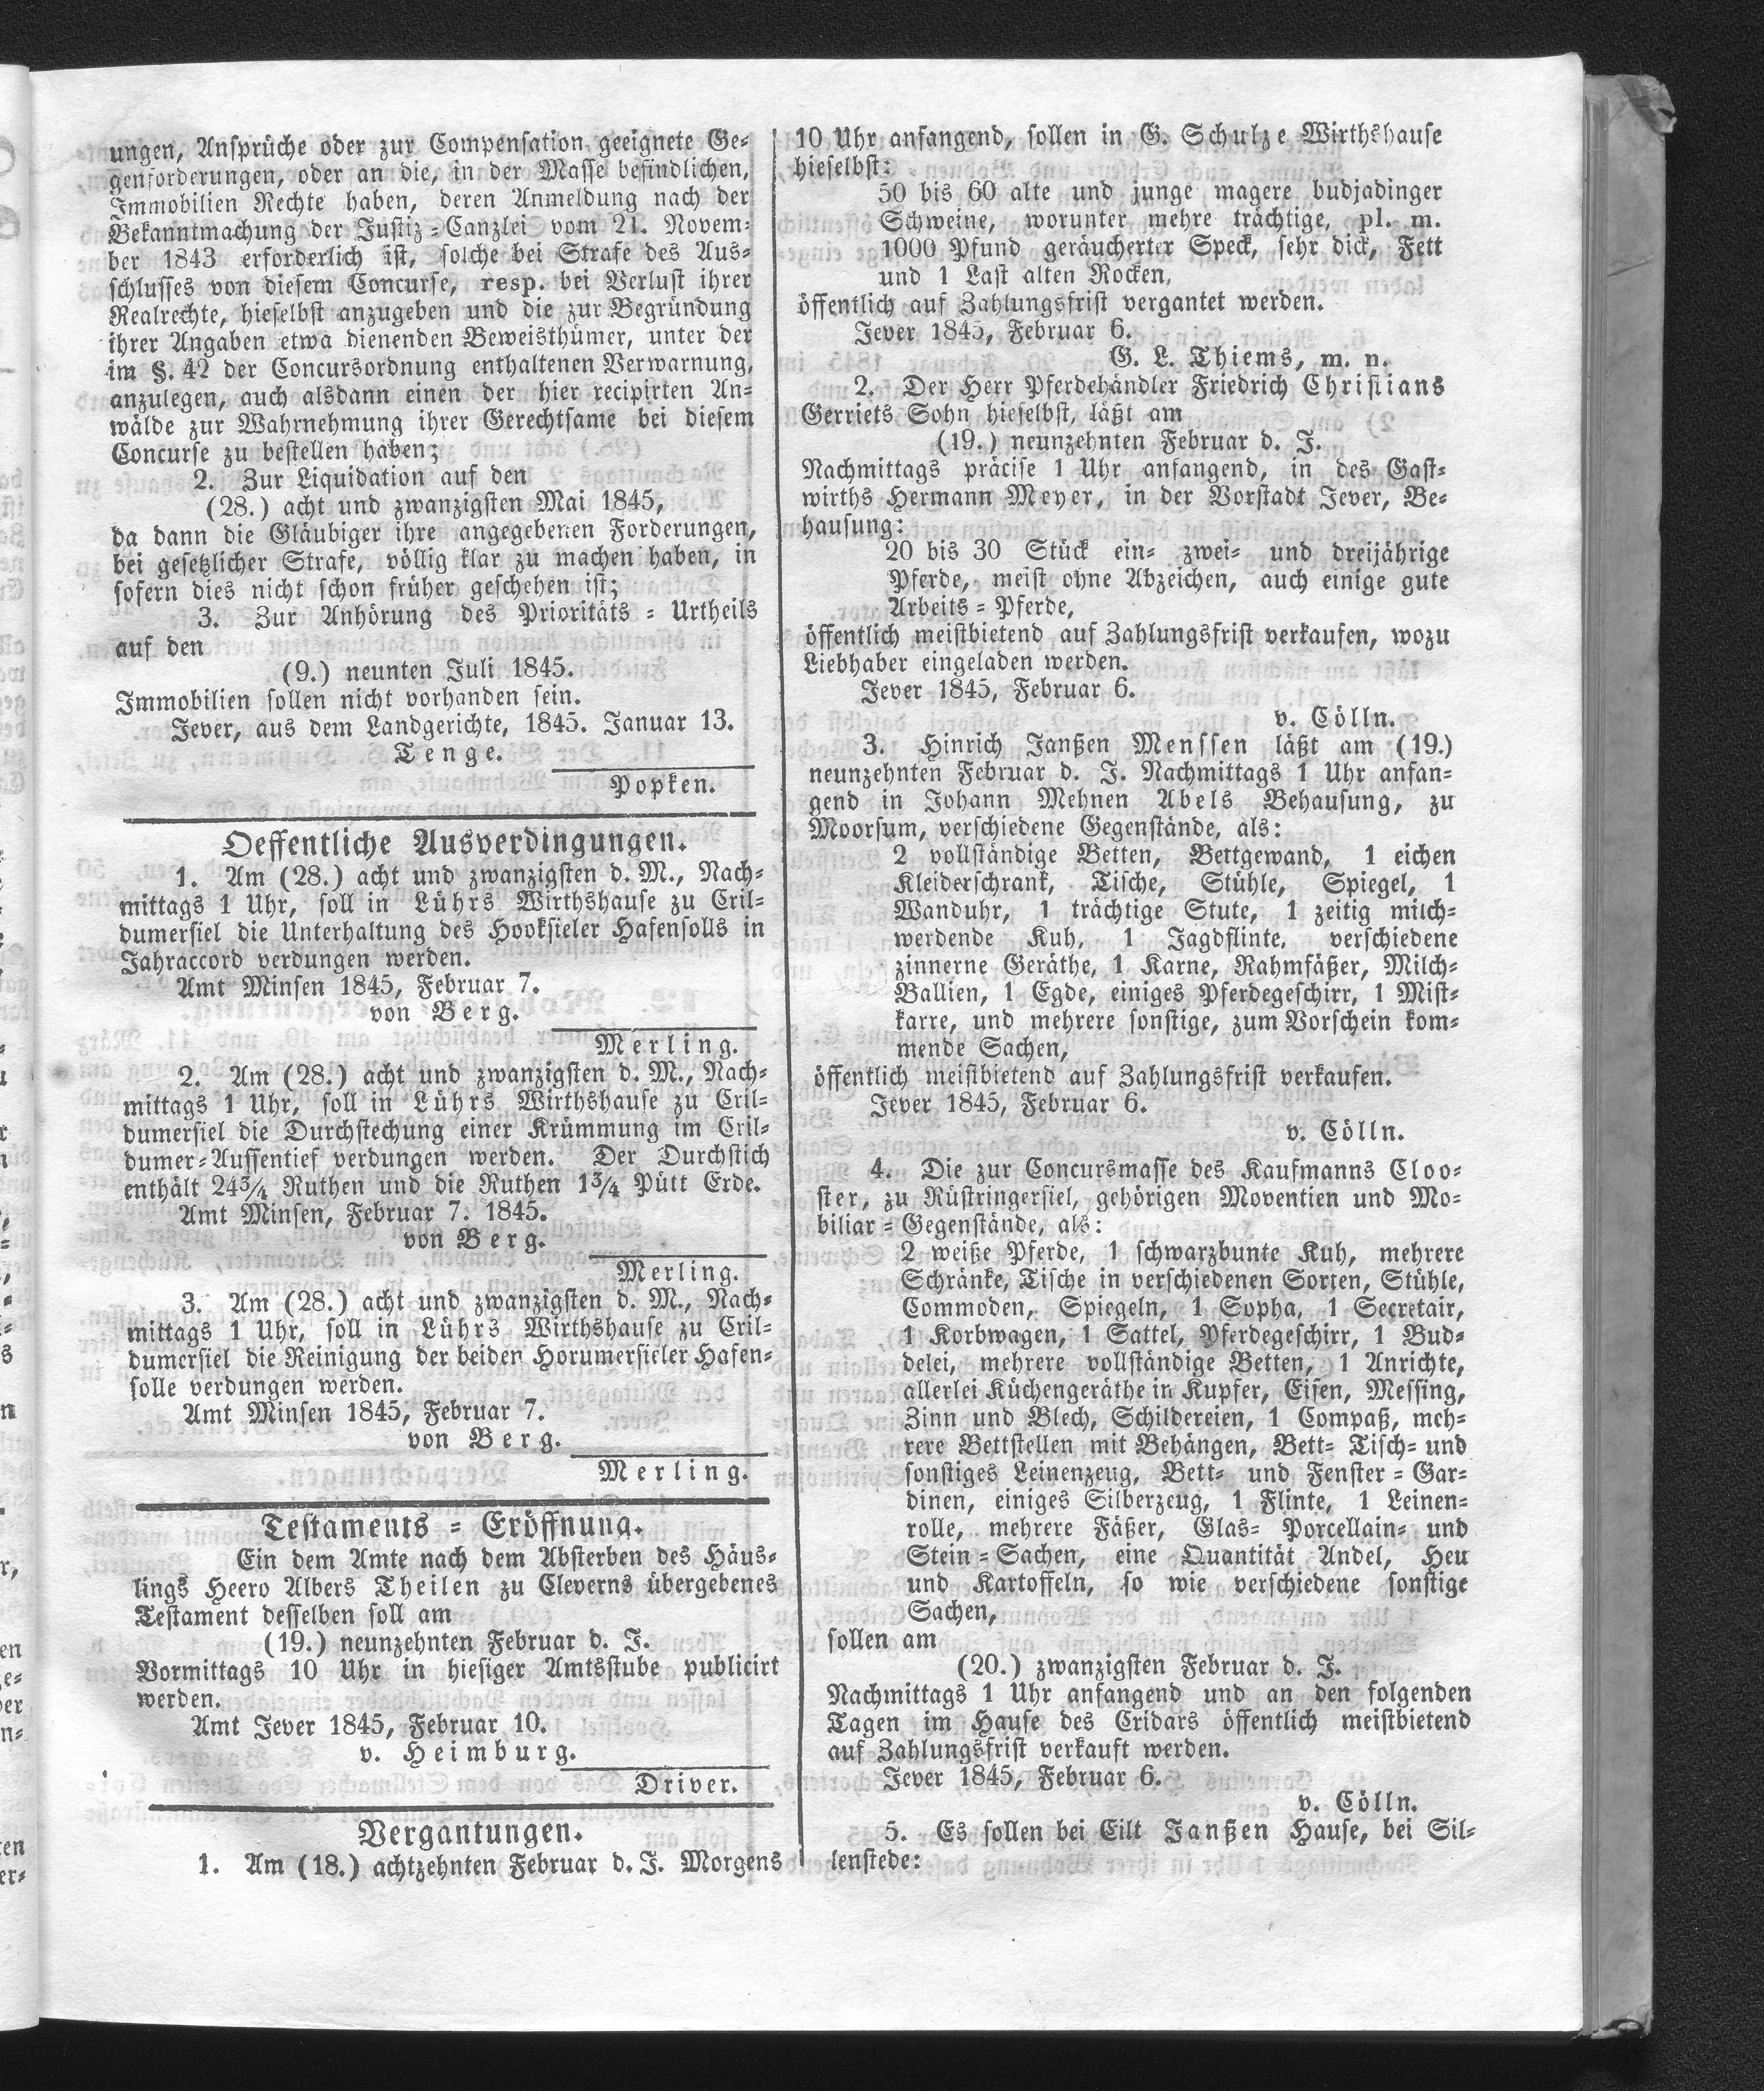 ungen, Ansprüche oder zur Compensation geeignete Ge-
genforderungen, oder an die, in der Masse befindlichen,
Immobilien Rechte haben, deren Anmeldung nach der
Bekanntmachung der Justiz-Canzlei vom 21. Novem-
ber 1843 erforderlich ist, solche bei Strafe des Aus-
schlusses von diesem Concurse, resp. bei Verlust ihrer
Realrechte, hieselbst anzugeben und die zur Begründung
ihrer Angaben etwa dienenden Beweisthümer, unter der
im §. 42 der Concursordnung enthaltenen Verwarnung,
anzulegen, auch alsdann einen der hier recipirten An-
wälde zur Wahrnehmung ihrer Gerechtsame bei diesem
Concurse zu bestellen haben;
2. Zur Liquidation auf den
(28.) acht und zwanzigsten Mai 1845,
da dann die Gläubiger ihre angegebenen Forderungen,
bei gesetzlicher Strafe, völlig klar zu machen haben, in
sofern dies nicht schon früher geschehen ist;
3. Zur Anhörung des Prioritäts-Urtheils
auf den
(9.) neunten Juli 1845.
Immobilien sollen nicht vorhanden sein.
Jever, aus dem Landgerichte, 1845. Januar 13.
Tenge.
Popken.
Oeffentliche Ausverdingungen.
1. Am (28.) acht und zwanzigsten d. M., Nach-
mittags 1 Uhr, soll in Lührs Wirthshause zu Cril-
dumersiel die Unterhaltung des Hooksieler Hafensolls in
Jahraccord verdungen werden.
Amt Minsen 1845, Februar 7.
von Berg.
Merling.
2. Am (28.) acht und zwanzigsten d. M., Nach-
mittags 1 Uhr, soll in Lührs Wirthshause zu Cril-
dumersiel die Durchstechung einer Krümmung im Cril-
dumer-Aussentief verdungen werden. Der Durchstich
enthält 24¾ Ruthen und die Ruthen 1¾ Pütt Erde.
Amt Minsen, Februar 7. 1845.
von Berg.
Merling.
3. Am (28.) acht und zwanzigsten d. M., Nach-
mittags 1 Uhr, soll in Lührs Wirthshause zu Cril-
dumersiel die Reinigung der beiden Horumersieler Hafen-
solle verdungen werden.
Amt Minsen 1845, Februar 7.
von Berg.
Merling.
Testaments-Eröffnung.
Ein dem Amte nach dem Absterben des Häus-
lings Heero Albers Theilen zu Cleverns übergebenes
Testament desselben soll am
(19.) neunzehnten Februar d. J.
Vormittags 10 Uhr in hiesiger Amtsstube publicirt
werden.
Amt Jever 1845, Februar 10.
v. Heimburg.
Driver.
Vergantungen.
1. Am (18.) achtzehnten Februar d. J. Morgens
10 Uhr anfangend, sollen in G. Schulze Wirthshause
hieselbst:
50 bis 60 alte und junge magere budjadinger
Schweine, worunter mehre trächtige, pl. m.
1000 Pfund geräucherter Speck, sehr dick, Fett
und 1 Last alten Rocken,
öffentlich auf Zahlungsfrist vergantet werden.
Jever 1845, Februar 6.
G. L. Thiems, m. n.
2. Der Herr Pferdehändler Friedrich Christians
Gerriets Sohn hieselbst, läßt am
(19.) neunzehnten Februar d. J.
Nachmittags präcise 1 Uhr anfangend, in des Gast-
wirths Hermann Meyer, in der Vorstadt Jever, Be-
hausung:
20 bis 30 Stück ein- zwei- und dreijährige
Pferde, meist ohne Abzeichen, auch einige gute
Arbeits-Pferde,
öffentlich meistbietend auf Zahlungsfrist verkaufen, wozu
Liebhaber eingeladen werden.
Jever 1845, Februar 6.
v. Cölln.
3. Hinrich Janßen Menssen läßt am (19.)
neunzehnten Februar d. J. Nachmittags 1 Uhr anfan-
gend in Johann Mehnen Abels Behausung, zu
Moorsum, verschiedene Gegenstände, als:
2 vollständige Betten, Bettgewand, 1 eichen
Kleiderschrank, Tische, Stühle, Spiegel, 1
Wanduhr, 1 trächtige Stute, 1 zeitig milch-
werdende Kuh, 1 Jagdflinte, verschiedene
zinnerne Geräthe, 1 Karne, Rahmfäßer, Milch-
Ballien, 1 Egde, einiges Pferdegeschirr, 1 Mist-
karre, und mehrere sonstige, zum Vorschein kom-
mende Sachen,
öffentlich meistbietend auf Zahlungsfrist verkaufen.
Jever 1845, Februar 6.
v. Cölln.
4. Die zur Concursmasse des Kaufmanns Cloo-
ster, zu Rüstringersiel, gehörigen Moventien und Mo-
biliar-Gegenstände, als:
2 weiße Pferde, 1 schwarzbunte Kuh, mehrere
Schränke, Tische in verschiedenen Sorten, Stühle,
Commoden, Spiegeln, 1 Sopha, 1 Secretair,
1 Korbwagen, 1 Sattel, Pferdegeschirr, 1 Bud-
delei, mehrere vollständige Betten, 1 Anrichte,
allerlei Küchengeräthe in Kupfer, Eisen, Messing,
Zinn und Blech, Schildereien, 1 Compaß, meh-
rere Bettstellen mit Behängen, Bett- Tisch- und
sonstiges Leinenzeug, Bett- und Fenster-Gar-
dinen, einiges Silberzeug, 1 Flinte, 1 Leinen-
rolle, mehrere Fäßer, Glas- Porcellain- und
Stein-Sachen, eine Quantität Andel, Heu
und Kartoffeln, so wie verschiedene sonstige
Sachen,
sollen am
(20.) zwanzigsten Februar d. J.
Nachmittags 1 Uhr anfangend und an den folgenden
Tagen im Hause des Cridars öffentlich meistbietend
auf Zahlungsfrist verkauft werden.
Jever 1845, Februar 6.
v. Cölln.
5. Es sollen bei Eilt Janßen Hause, bei Sil-
lenstede: